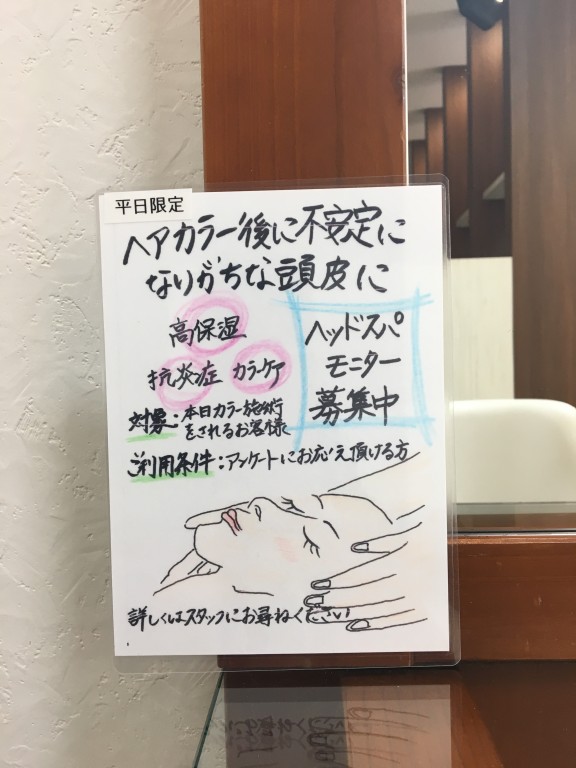 平日限定
ヘアカラー後に不安定に
なりがちな頭皮に
高保湿
抗炎症 カラーケア
ヘッドスパ
モニター
募集中
対象：本日カラー施術
をされるお客様
ご利用条件：アンケートにお応え頂ける方
詳しくはスタッフにお尋ねください